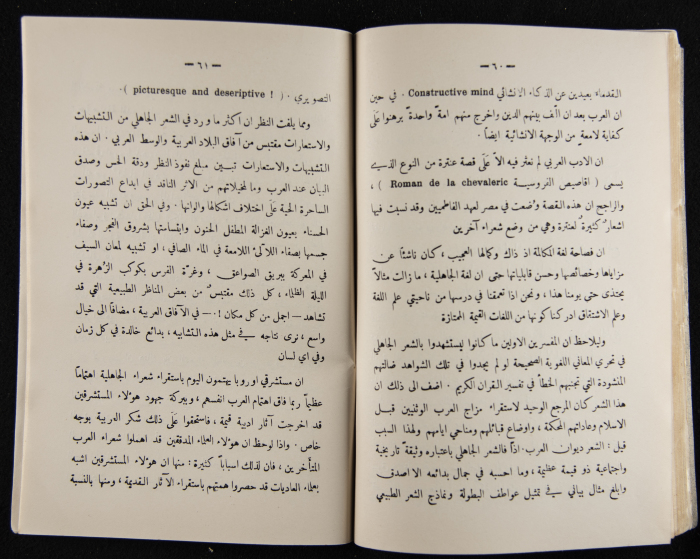 — ٦٠ —
القدماء بعيدين عن الذكاء الانشائي Constructive mind . في حين
ان العرب بعد ان الّف بينهم الدين واخرج منهم امة واحدة برهنوا عَلَى
كفاية لامعة من الوجهة الانشائية ايضاً .
ان الادب العربي لم نعثر فيه الاّ عَلَى قصة عنترة من النوع الذي
يسمى ( اقاصيص الفروسية Roman de la chevaleric ) ،
والراجح ان هذه القصة وُضعت في مصر لعهد الفاطميين وقد نسبت فيها
اشعارٌ كثيرة لعنترة وهي من وضع شعراء آخرين
ان فصاحة لغة المكالمة اذ ذاك وكمالها العجيب ، كان ناشئاً عن
مزاياها وخصائصها وحسن قابلياتها حتى ان لغة الجاهلية ، ما زالت مثالاً
يحتذى حتى يومنا هذا ، ونحن اذا تعمقنا في درسها من ناحيتي علم اللغة
وعلم الاشتقاق ادركنا كونها من اللغات القيمة الممتازة
وليلاحظ ان المفسرين الاولين ما كانوا ليستشهدوا بالشعر الجاهلي
في تحري المعاني اللغوية الصحيحة لو لم يجدوا في تلك الشواهد ضالتهم
المنشودة التي تجنبهم الخطأ في تفسير القرآن الكريم . اضف الى ذلك ان
هذا الشعر كان المرجع الوحيد لاستقراء مزاج العرب الوثنيين قبل
الاسلام وعاداتهم المحكمة ، واوضاع قبائلهم ومناحي ايامهم ولهذا السبب
قيل : الشعر ديوان العرب . اذاً فالشعر الجاهلي باعتباره وثيقة تاريخية
واجتماعية ذو قيمة عظيمة ، وما احسبه في جمال بدائعه الا اصدق
وابلغ مثال بياني في تمثيل عواطف البطولة ونماذج الشعر الطبيعي
— ٦١ —
التصويري . ( picturesque and deseriptive ! ) .
ومما يلفت النظر ان اكثر ما ورد في الشعر الجاهلي من التشبيهات
والاستعارات مقتبس من آفاق البلاد العربية والوسط العربي . ان هذه
التشبيهات والاستعارات تبين مبلغ نفوذ النظر ودقة الحس وصدق
البيان عند العرب وما لمخيلاتهم من الاثر النافذ في ابداع التصورات
الساحرة الحية عَلَى اختلاف اشكالها والوانها . وفي الحق ان تشبيه عيون
الحسناء بعيون الغزالة المطفل الحنون وابتسامتها بشروق الفجر وصفاء
جسمها بصفاء اللآلئ اللامعة في الماء الصافي ، او تشبيه لمعان السيف
في المعركة ببريق الصواعق ، وغرّة الفرس بكوكب الزهرة في
الليلة الظلماء ، كل ذلك مقتبسٌ من بعض المناظر الطبيعية التي قد
تشاهد — اجمل من كل مكان ! — في الآفاق العربية ، مضافاً الى خيال
واسع ، نرى نتاجه في مثل هذه التشابيه ، بدائع خالدة في كل زمان
وفي اي لسان
ان مستشرقي اوروبا يهتمون اليوم باستقراء شعراء الجاهلية اهتماماً
عظيماً ربما فاق اهتمام العرب انفسهم ، وببركة جهود هؤلاء المستشرقين
قد اخرجت آثار ادبية قيمة ، فاستحقوا عَلَى ذلك شكر العربية بوجه
خاص . واذا لوحظ ان هؤلاء العلماء المدققين قد اهملوا شعراء العرب
المتأخرين ، فان لذلك اسباباً كثيرة : منها ان هؤلاء المستشرقين اشبه
بعلماء العاديات قد حصروا همتهم باستقراء الآثار القديمة ، ومنها بالنسبة